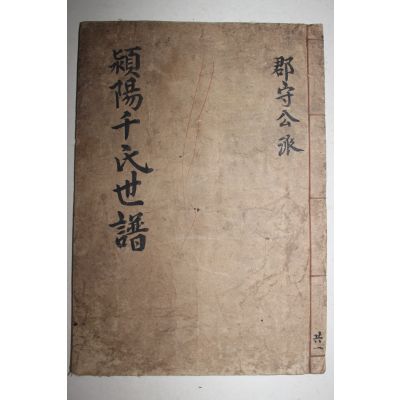 郡守公派
穎陽千氏世譜
共一